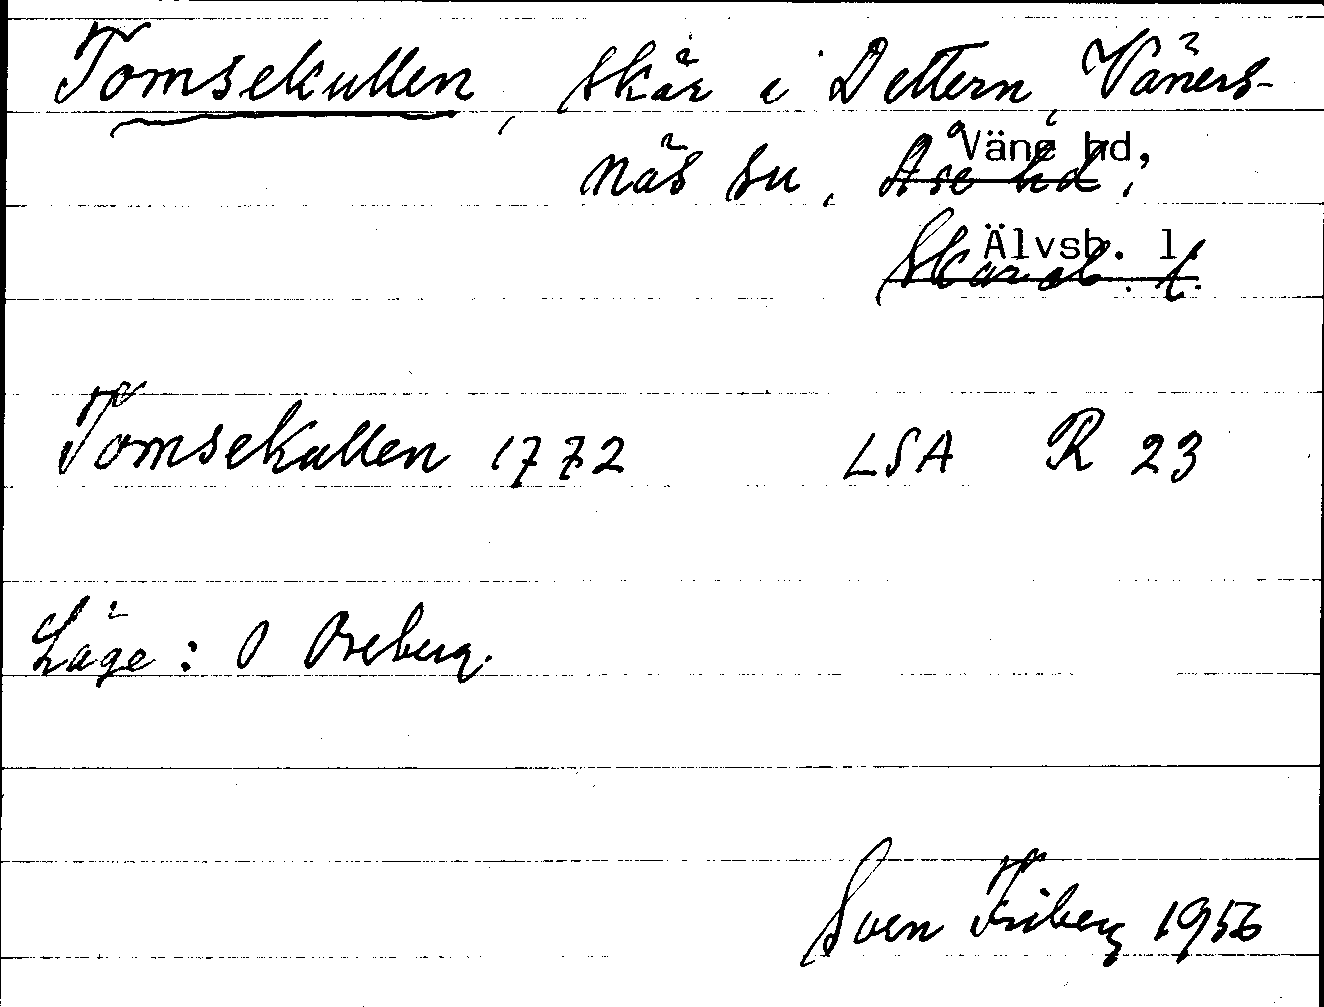 Tomsekullen, skär i Dettern, Väners-
näs sn, Åse hd,
Väne hd,
Skarab. l.
Älvsb. l.
Tomsekullen 1772 LSA R 23
Läge: O Oreberg.
Sven Friberg 1956